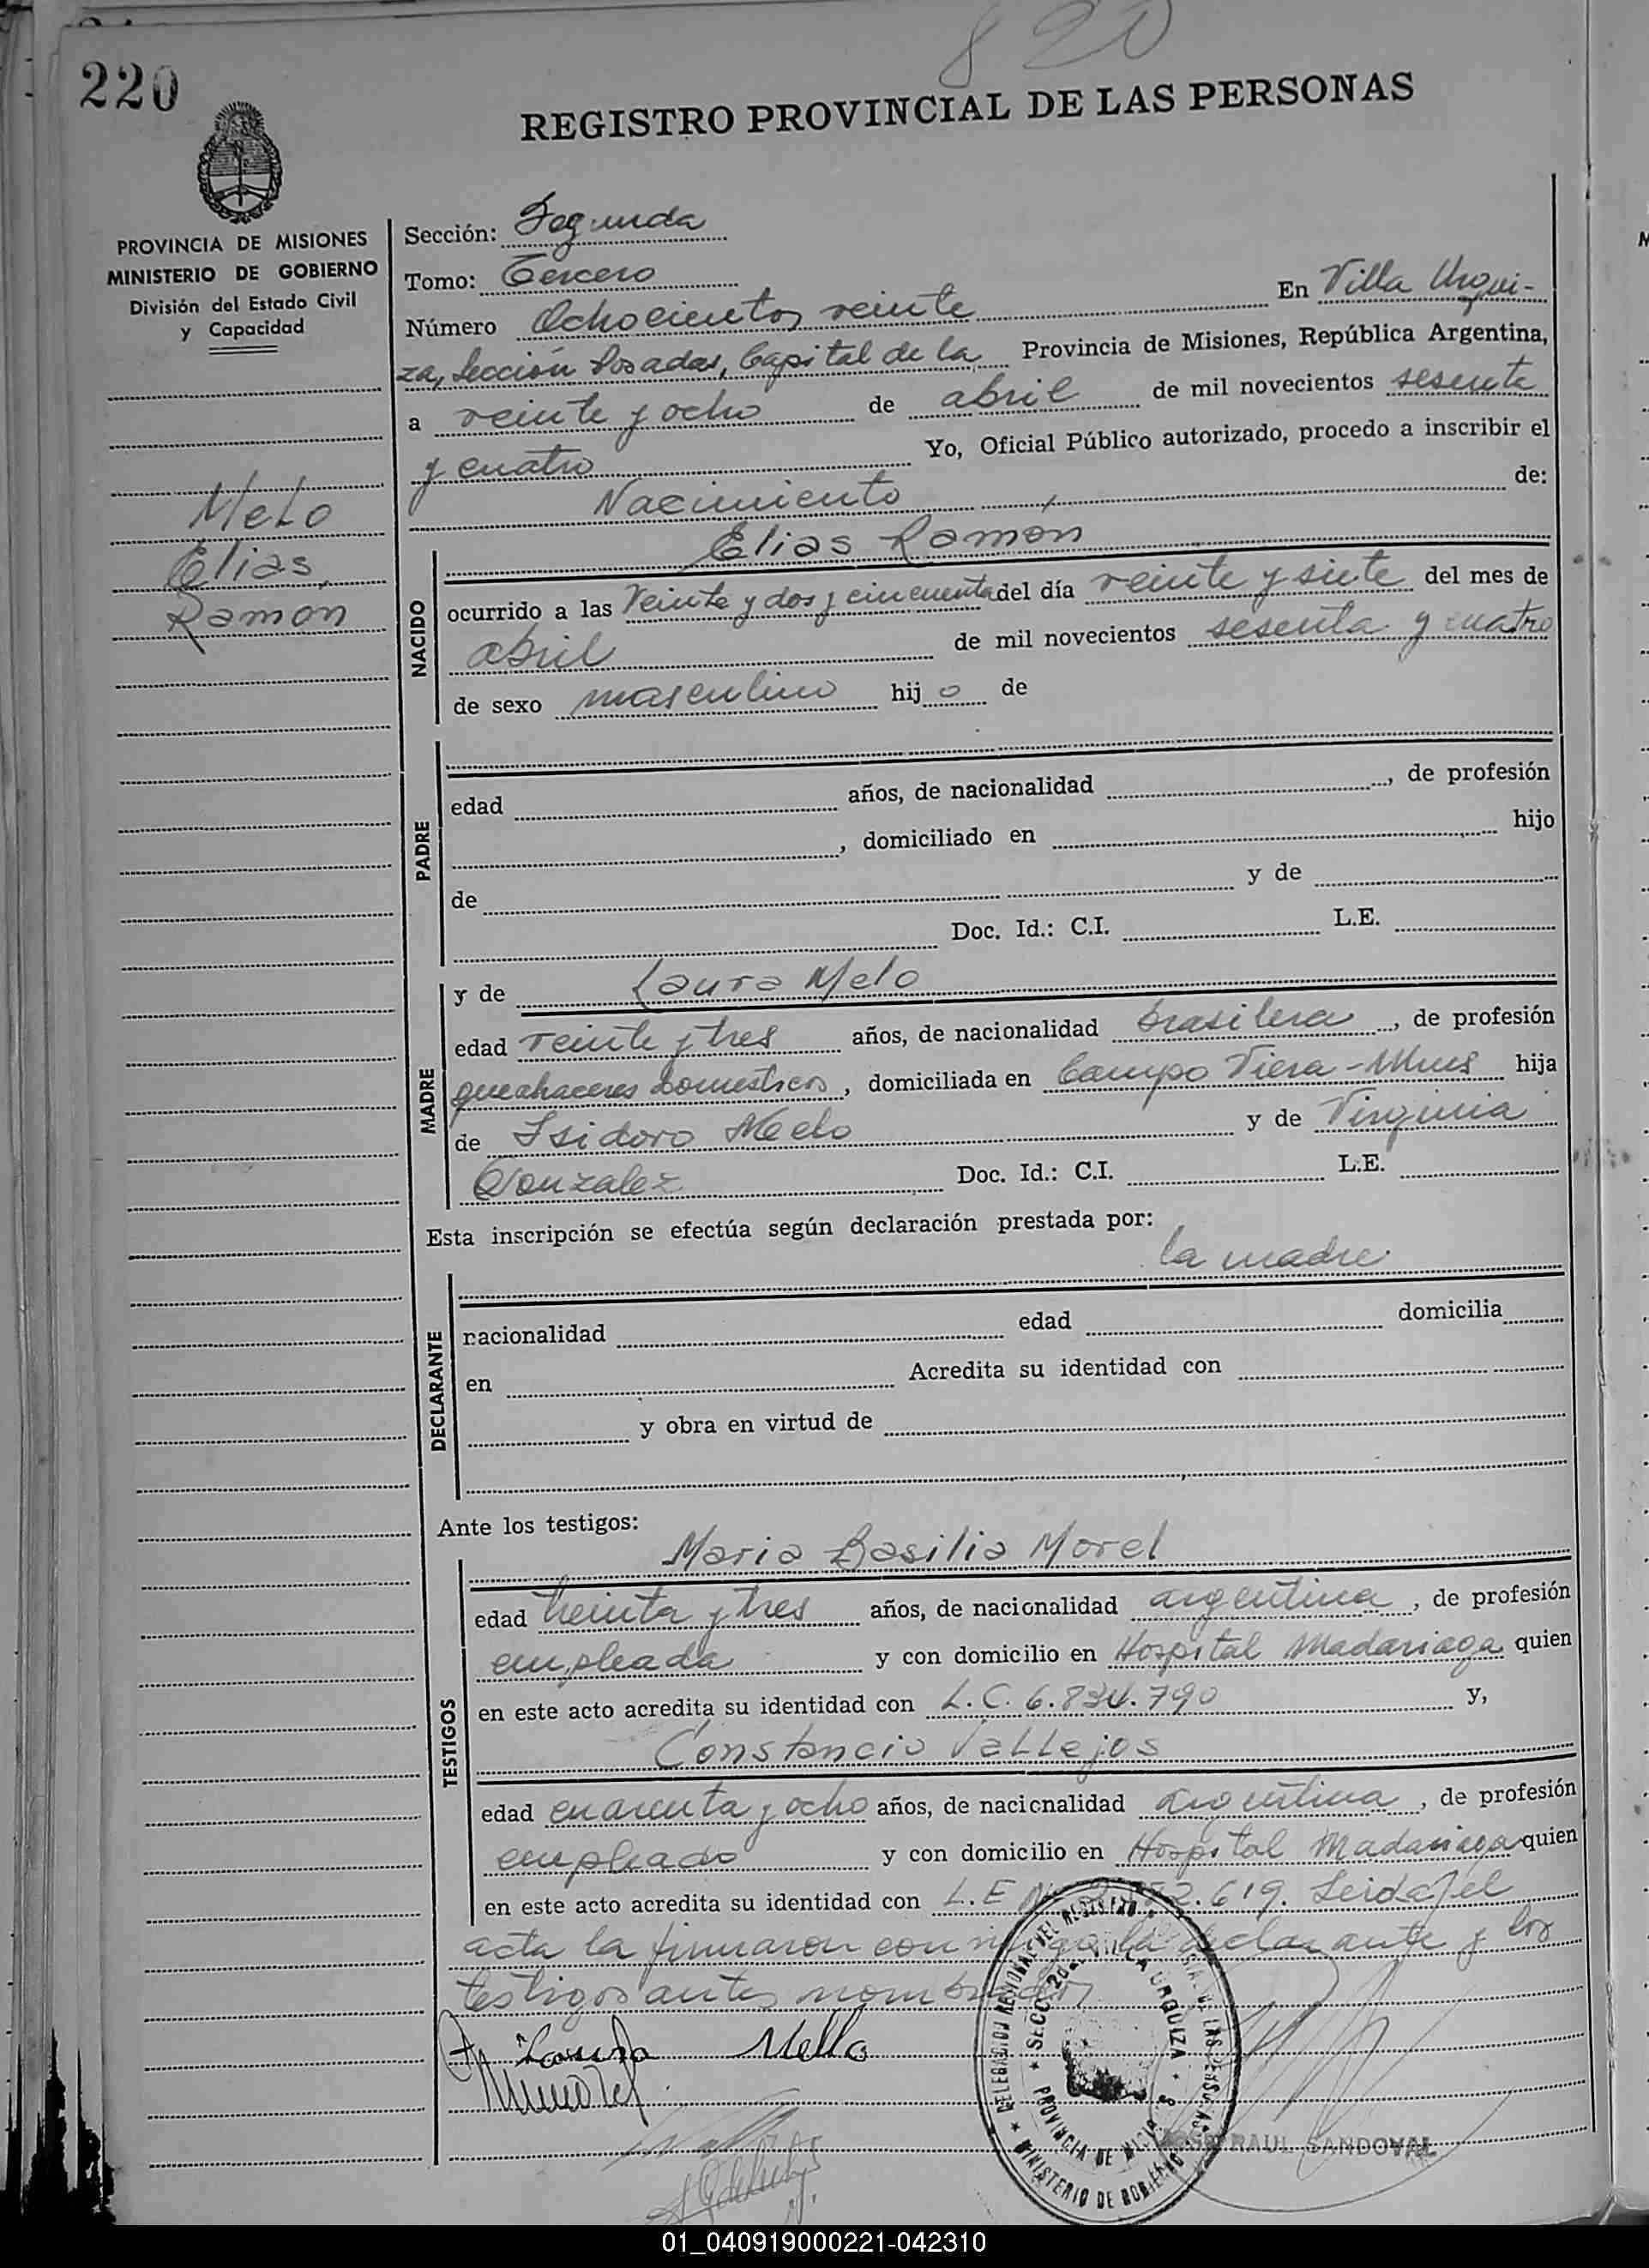 820
220
REGISTRO PROVINCIAL DE LAS PERSONAS
PROVINCIA DE MISIONES
MINISTERIO DE GOBIERNO
División del Estado Civil
y Capacidad
Melo
Elias,
Ramón
Sección: Segunda
Tomo: Tercero
Número Ochocientos veinte En Villa Urqui-
za, Sección Posadas, Capital de la Provincia de Misiones, República Argentina,
a veinte y ocho de abril de mil novecientos sesenta
y cuatro Yo, Oficial Público autorizado, procedo a inscribir el
Nacimiento de:
Elias Ramón
NACIDO
ocurrido a las veinte y dos y cincuenta del día veinte y siete del mes de
abril de mil novecientos sesenta y cuatro
de sexo masculino hijo de
PADRE
edad años, de nacionalidad , de profesión
, domiciliado en hijo
de y de
Doc. Id.: C.I. L.E.
MADRE
y de Laura Melo
edad veinte y tres años, de nacionalidad brasilera , de profesión
quehaceres domesticos , domiciliada en Campo Viera - Mnes hija
de Isidoro Melo y de Virginia
Gonzalez Doc. Id.: C.I. L.E.
Esta inscripción se efectúa según declaración prestada por:
la madre
DECLARANTE
nacionalidad edad domicilia
en Acredita su identidad con
y obra en virtud de
Ante los testigos:
Maria Basilia Morel
TESTIGOS
edad treinta y tres años, de nacionalidad argentina , de profesión
empleada y con domicilio en Hospital Madariaga quien
en este acto acredita su identidad con L.C. 6.834.790 y,
Constancio Vallejos
edad cuarenta y ocho años, de nacionalidad argentina , de profesión
empleado y con domicilio en Hospital Madariaga quien
en este acto acredita su identidad con L.E Nº 2.619. Leida el
acta la firmaron conmigo la declarante y los
testigos antes nombrados
Laura Mello
MINISTERIO DE GOBIERNO
SECC. 2da. VILLA URQUIZA
PROVINCIA DE MISIONES
RAUL SANDOVAL
01_040919000221-042310